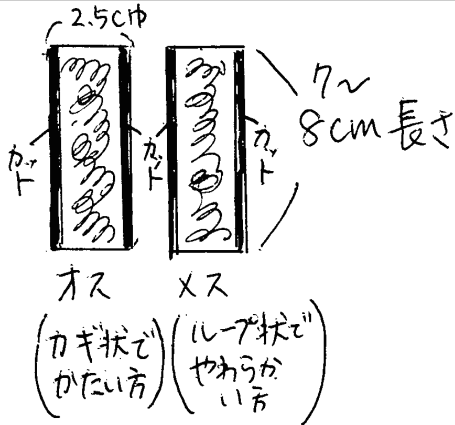 2.5cm巾
カット
カット
カット
7〜
8cm長さ
オス
(カギ状で
かたい方)
メス
(ループ状で
やわらか
い方)